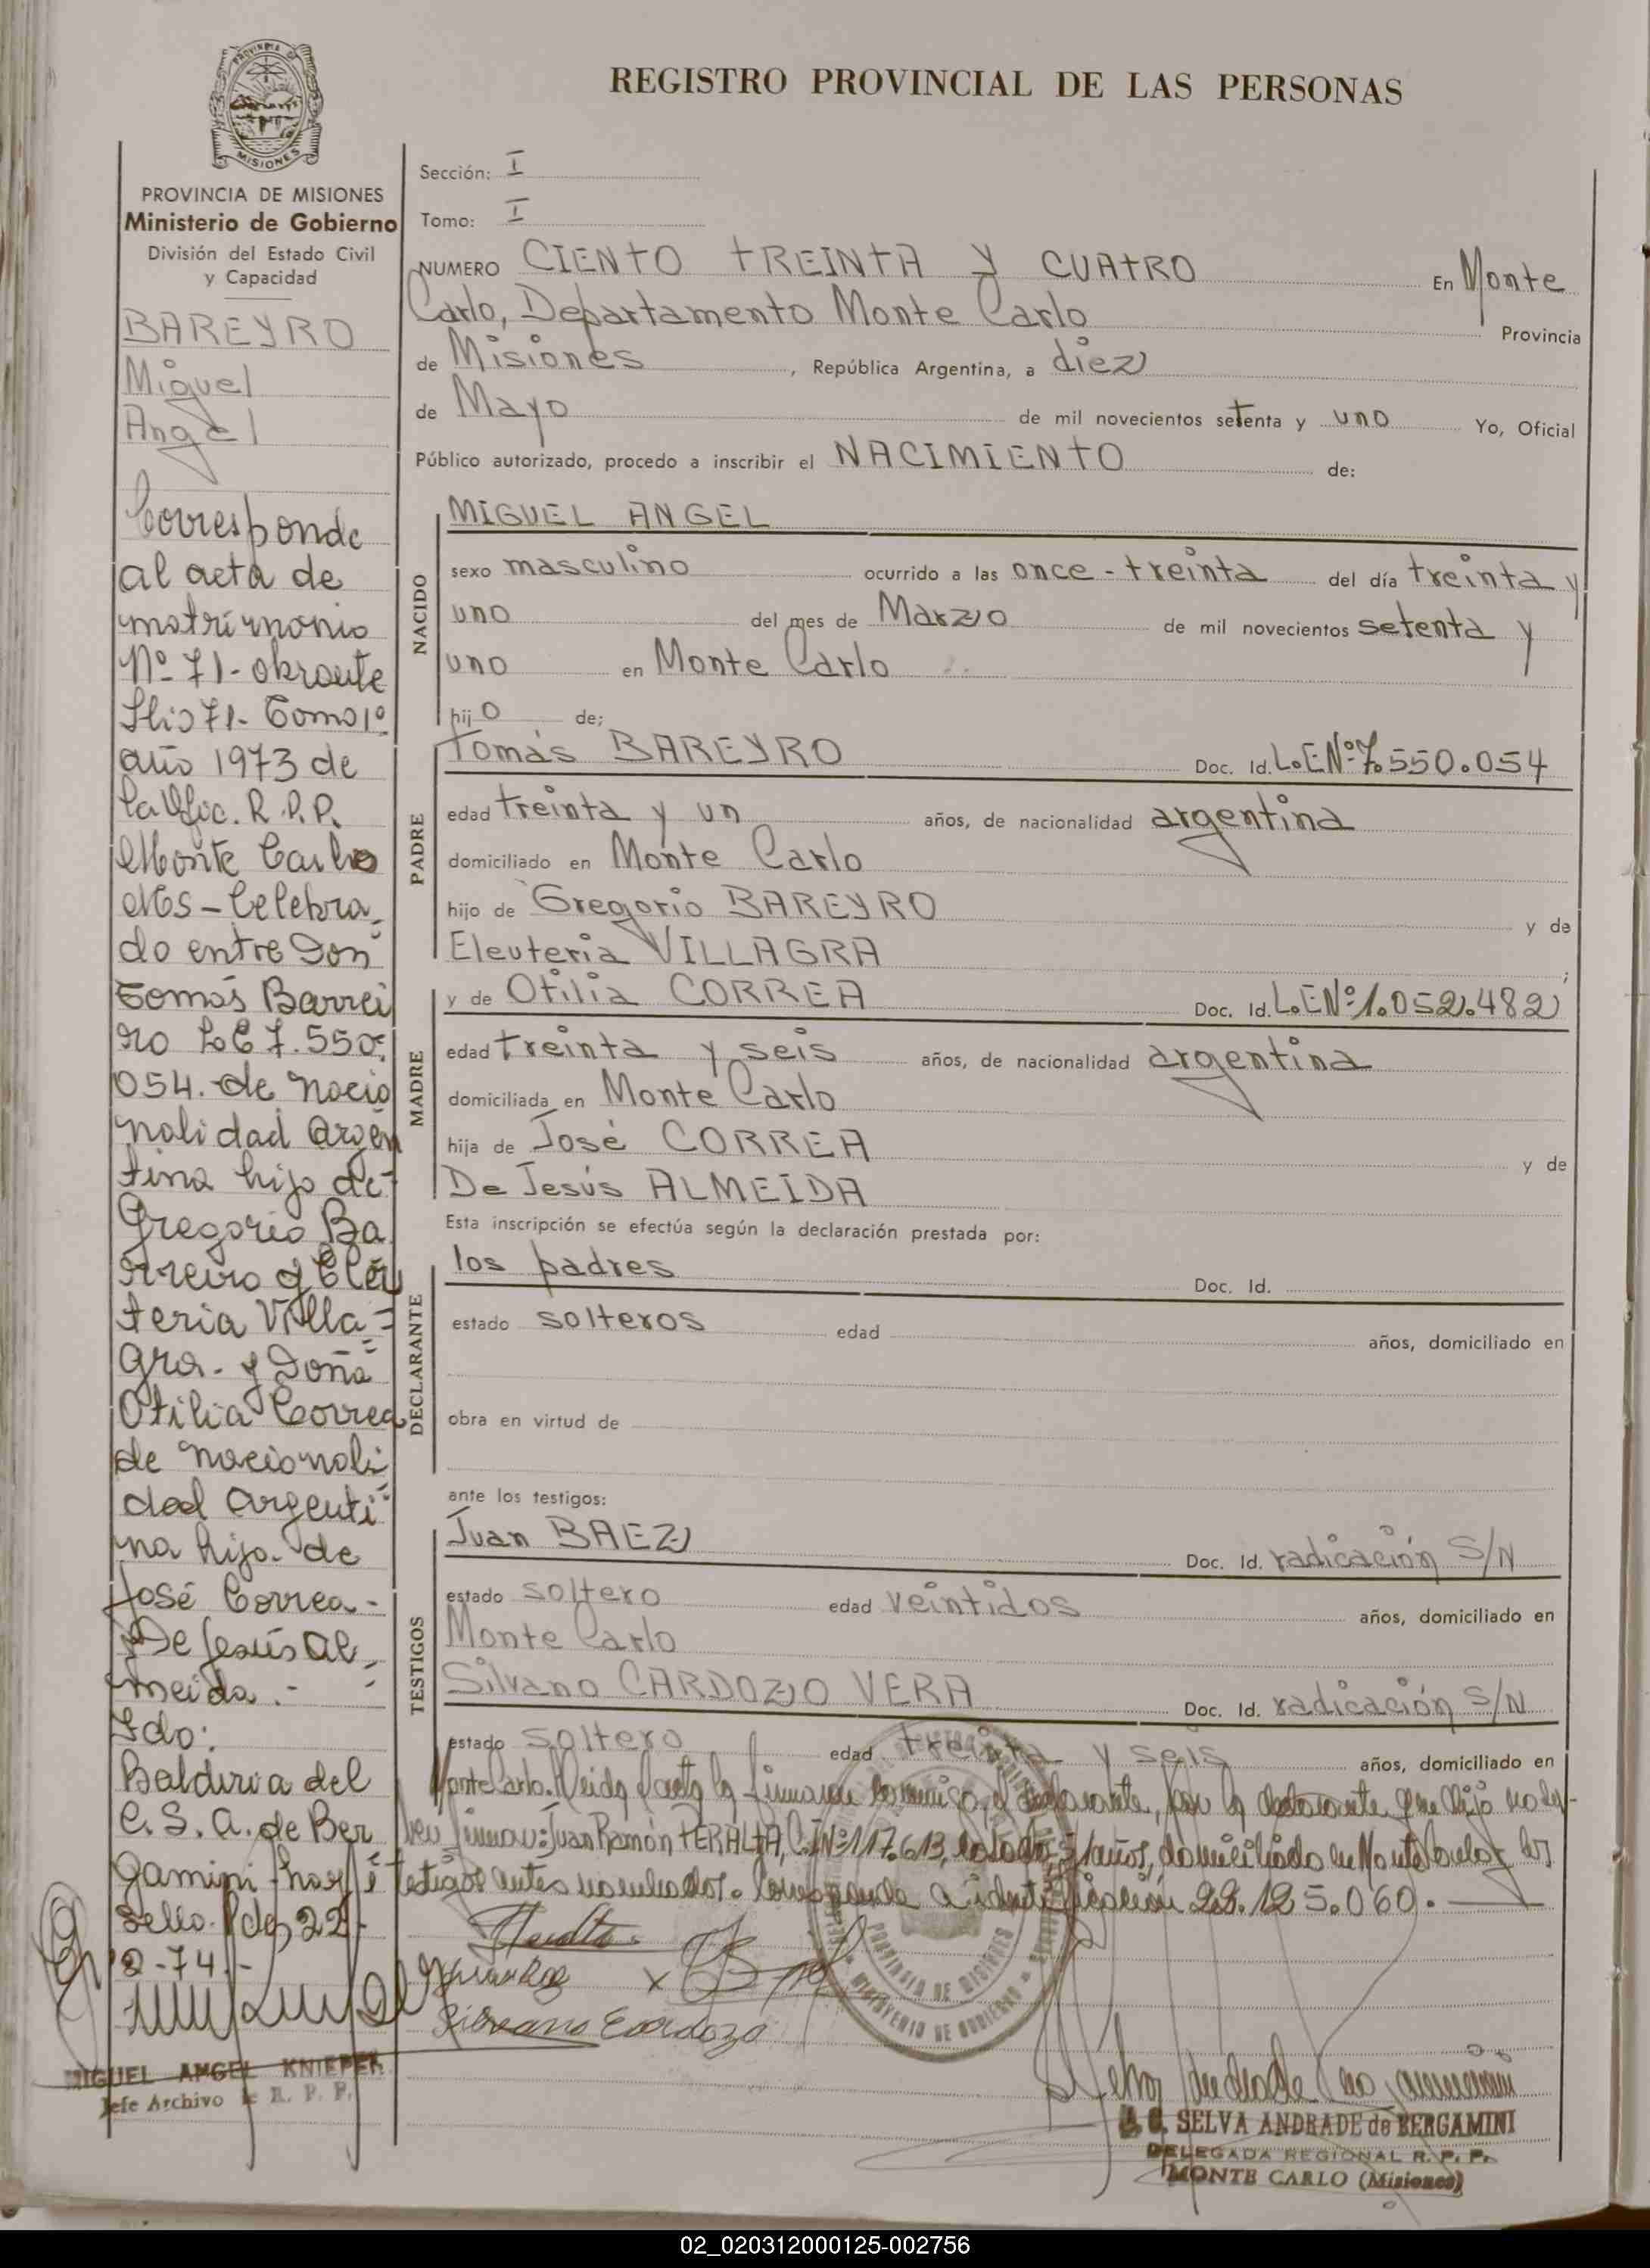 PROVINCIA DE
MISIONES
REGISTRO PROVINCIAL DE LAS PERSONAS
PROVINCIA DE MISIONES
Ministerio de Gobierno
División del Estado Civil
y Capacidad
BAREYRO
Miguel
Angel
Corresponde
al acta de
matrimonio
Nº 71- obrante
folio 71- Tomo 1º
año 1973 de
la Ofic. R.P.P.
Monte Carlo
Mes - Celebra
do entre Don
Tomás Barrei
ro L.E 7.550.
054. de nacio
nalidad Argen
tina hijo de
Gregorio Ba
rreiro y Eleu
teria Villa=
gra. y Doña
Otilia Correa
de nacionali
dad Argenti
na hija de
José Correa-
De Jesús Al
meida.-
Fdo:
Baldiria del
C. S. A. de Ber
gamini hay
sello. Pdas 22-
2-74.-
MIGUEL ANGEL KNIEPER
Jefe Archivo R. P. P.
Sección: I
Tomo: I
NUMERO CIENTO TREINTA Y CUATRO En Monte
Carlo, Departamento Monte Carlo Provincia
de Misiones, República Argentina, a diez
de Mayo de mil novecientos setenta y uno Yo, Oficial
Público autorizado, procedo a inscribir el NACIMIENTO de:
NACIDO
MIGUEL ANGEL
sexo masculino ocurrido a las once-treinta del día treinta y
uno del mes de Marzo de mil novecientos setenta y
uno en Monte Carlo
hijo de:
PADRE
Tomás BAREYRO Doc. Id. L.E.Nº 7.550.054
edad treinta y un años, de nacionalidad argentina
domiciliado en Monte Carlo
hijo de Gregorio BAREYRO y de
Eleuteria VILLAGRA ;
MADRE
y de Otilia CORREA Doc. Id. L.E.Nº 1.052.482
edad treinta y seis años, de nacionalidad argentina
domiciliada en Monte Carlo
hija de José CORREA y de
De Jesús ALMEIDA
Esta inscripción se efectúa según la declaración prestada por:
DECLARANTE
los padres Doc. Id.
estado solteros edad años, domiciliado en
obra en virtud de
ante los testigos:
TESTIGOS
Juan BAEZ Doc. Id. radicación S/N
estado soltero edad veintidos años, domiciliado en
Monte Carlo
Silvano CARDOZO VERA Doc. Id. radicación S/N
estado soltero edad treinta y seis años, domiciliado en
Monte Carlo. Leida el acta la firman conmigo, el declarante, por la declarante que dijo no sa-
ber firmar: Juan Ramón PERALTA, C.I.Nº 117.613, domiciliado en Monte Carlo y los
testigos antes nombrados. Corresponde a identificación 22.125.060.
Silvano Cardozo
PROVINCIA DE MISIONES
MINISTERIO DE GOBIERNO
SELVA ANDRADE de BERGAMINI
DELEGADA REGIONAL R. P. P.
MONTE CARLO (Misiones)
02_020312000125-002756